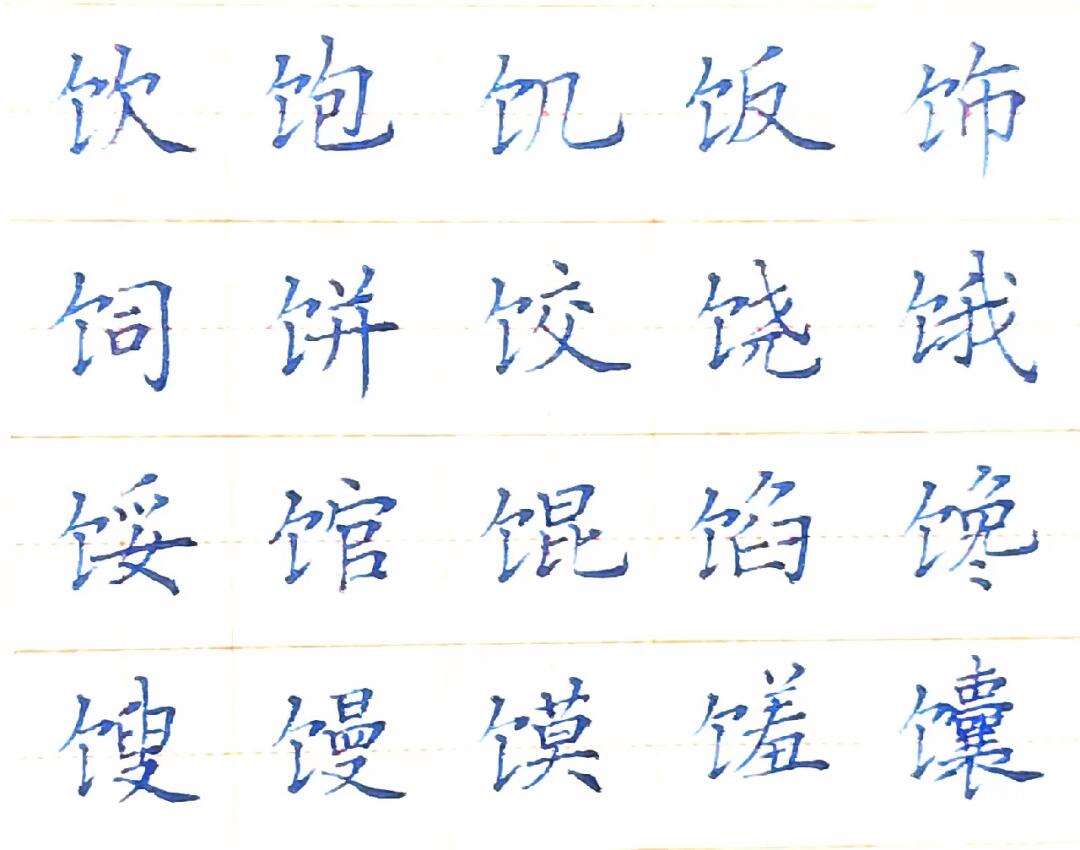 饮饱饥饭饰
饲饼饺饶饿
馁馆馄馅馋
馊馒馍馐馕